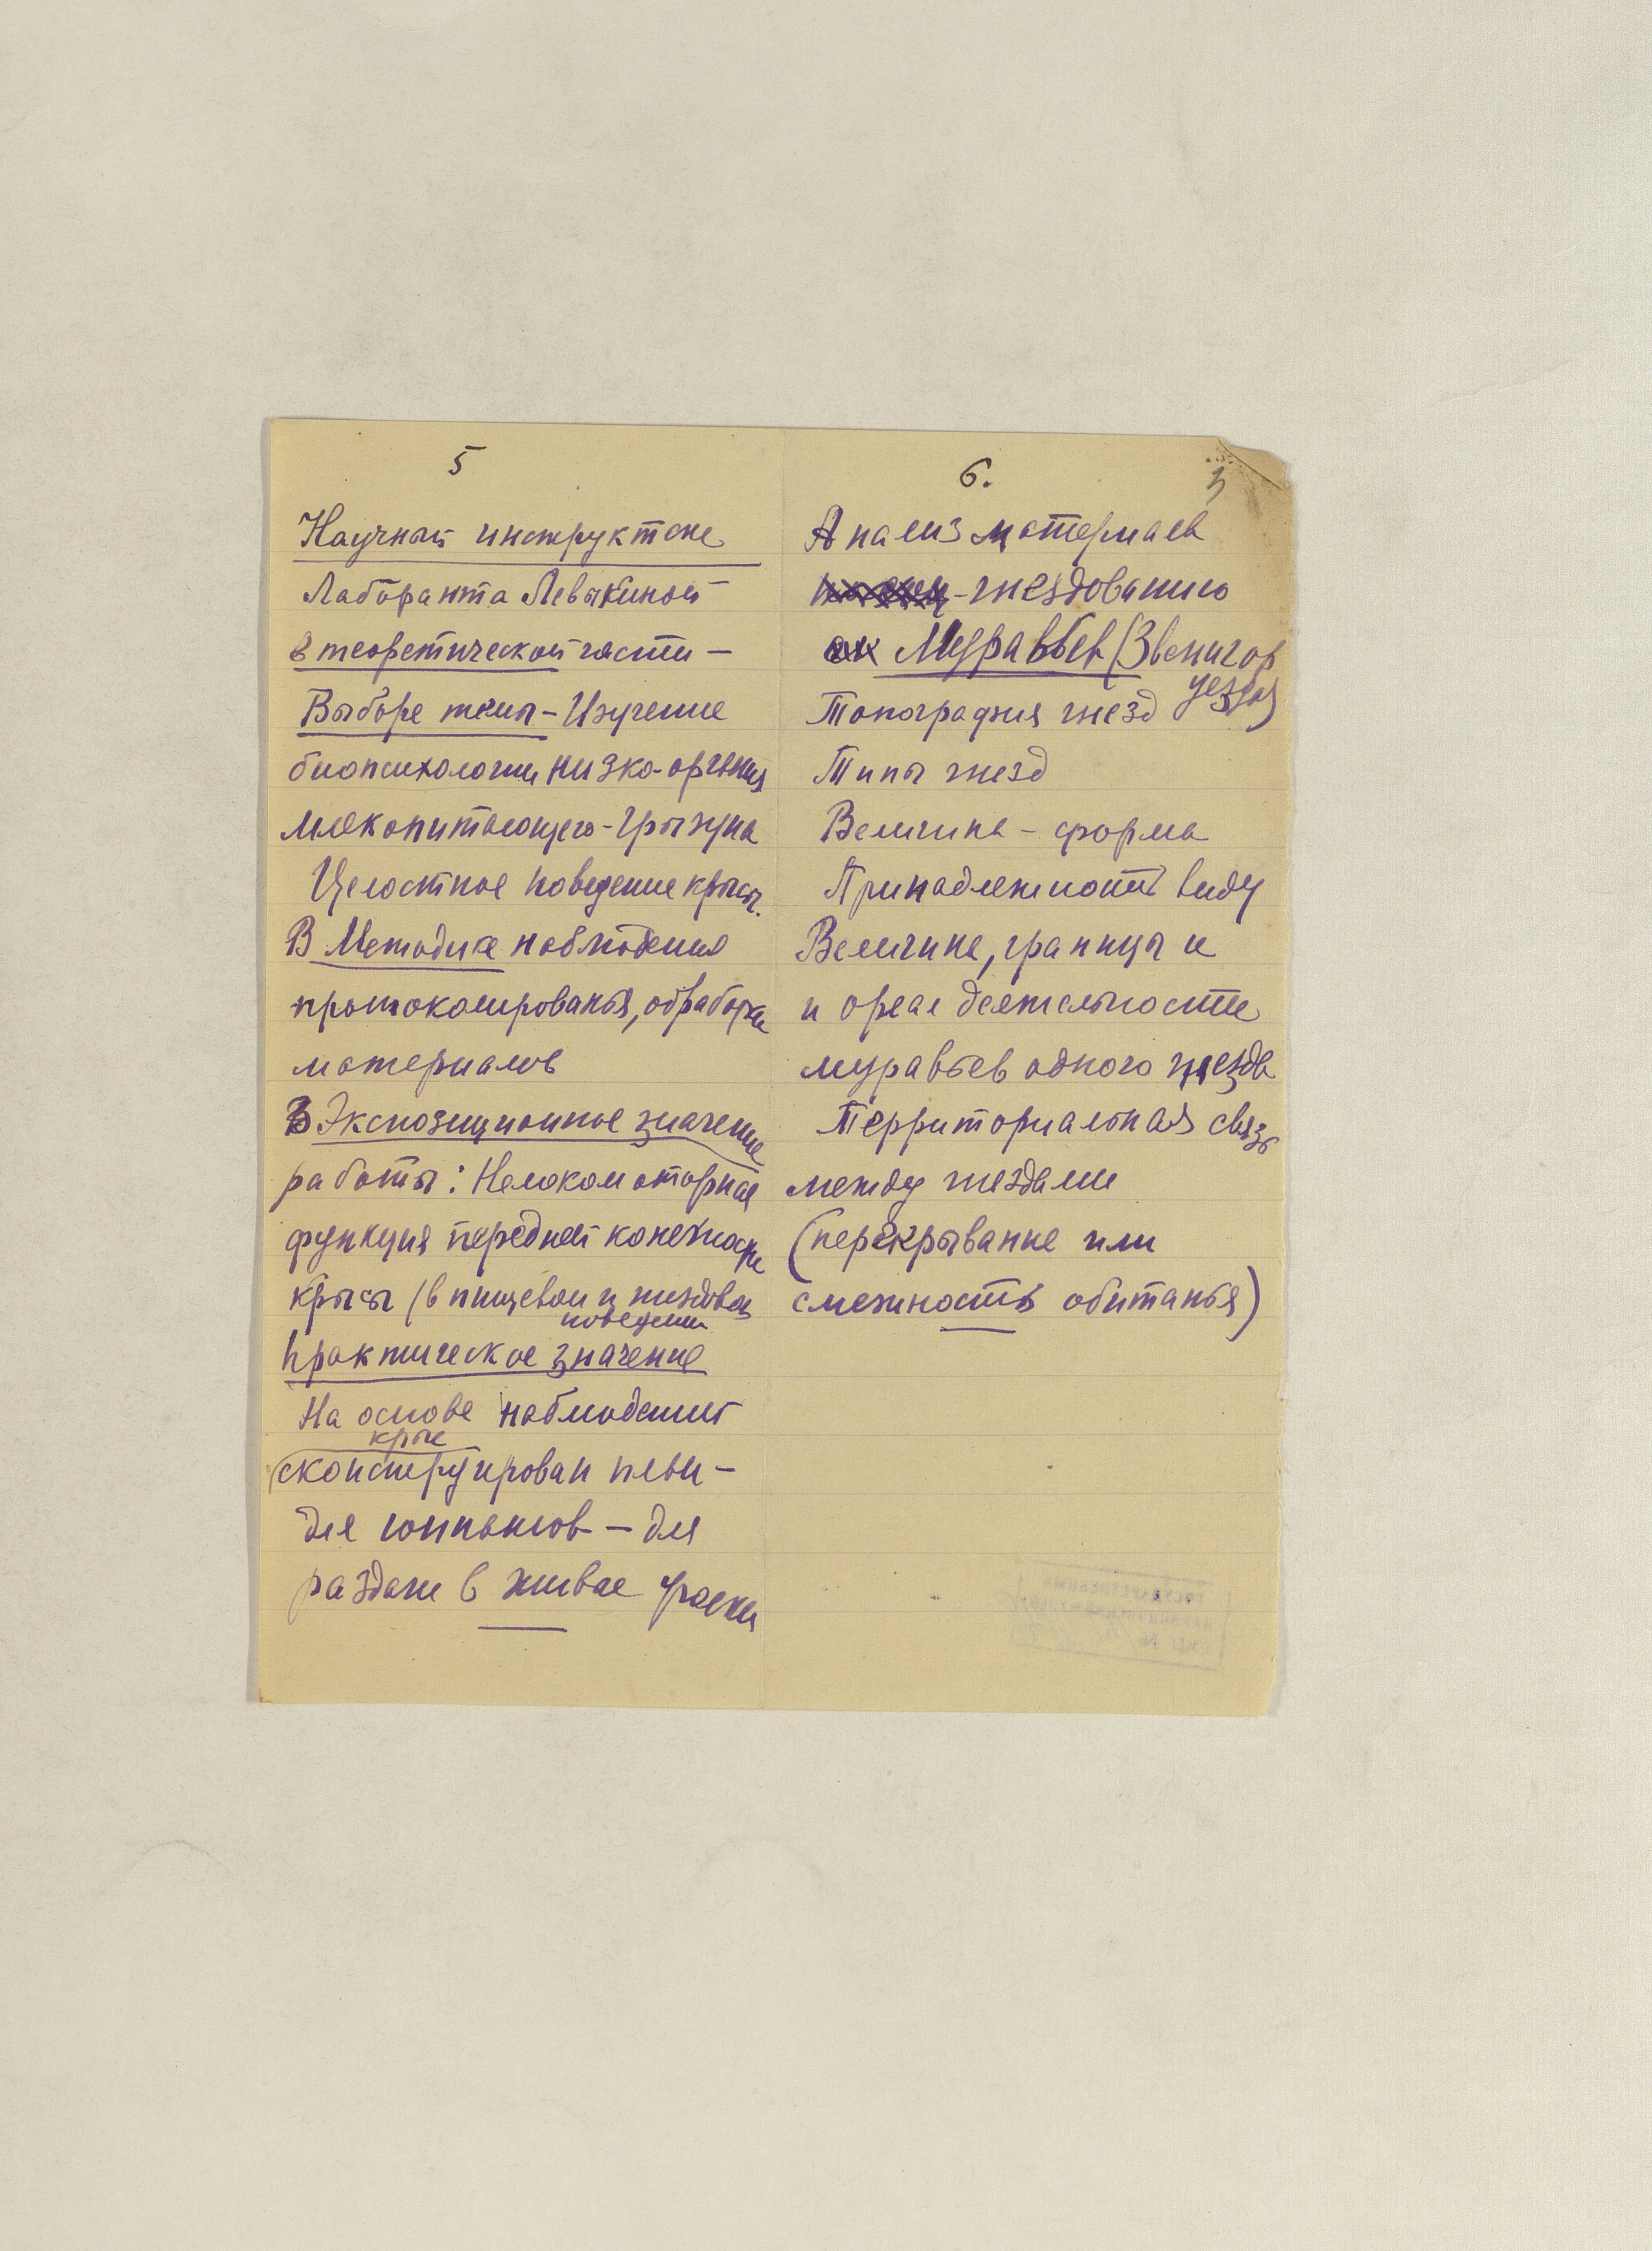 5
Научный инструктаж
Лаборанта Левыкиной
в теоретической части –
Выборе темы – Изучение
биопсихологии низко-органия
млекопитающего – грызуна
Целостное поведение крысы.
В Методике наблюдения
протоколированья, обработки
материалов
В Экспозиционное значение
работы: Нелокомоторная
функция передней конечности
крысы (в пищевом и гнездовом
поведении
Практическое значение
На основе наблюдений
крыс
сконструирован
для – для
раздачи в живые уголки
6.
3
Анализ материалов
гнездованию
Муравьев (Звенигор
уезда)
Топография гнезд
Типы гнезд
Величина – форма
Принадлежность виду
Величина, границы и
и ореал деятельности
муравьев одного гнезда
Территориальная связь
между гнездами
(перекрыванье или
смежность обитанья)